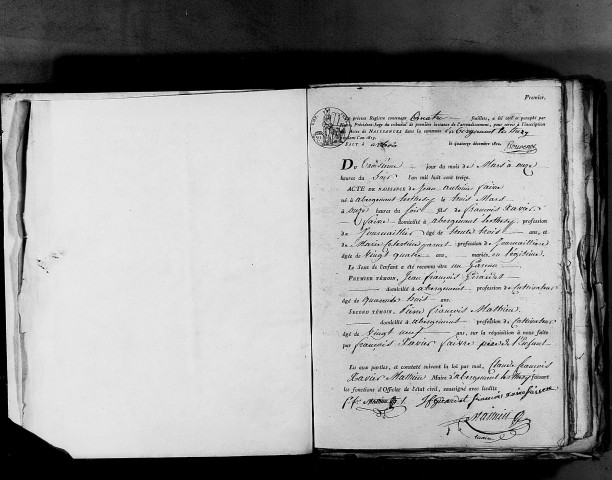 Premier.
présent Registre contenant quatre feuillets, a été coté et paraphé par
Président-Juge du tribunal de première instance de l'arrondissement, pour servir à l'inscription
Actes de NAISSANCES dans la commune d'abergement les thesy
pendant l'an 1813.
FAIT à arbois le quatorze décembre 1812.
DU troisième jour du mois de Mars à onze
heures du soir l'an mil huit cent treize.
ACTE DE NAISSANCE de Jean antoine faivre
né à abergement lesthesy le trois Mars
à onze heures du soir fils de françois Xavier
faivre domicilié à abergement lesthesy profession
de Journaillier âgé de trente trois ans, et
de Marie Celestine profession de Journaillière
âgée de vingt quatre ans, mariés en légitime
Le Sexe de l'enfant a été reconnu être un Garçon
PREMIER TÉMOIN, Jean françois Girardet
domicilié à abergement profession de Cultivateur
âgé de quarante trois ans.
SECOND TÉMOIN, françois Mathieu
domicilié à abergement profession de Cultivateur
âgé de vingt neuf ans, sur la réquisition à nous faite
par françois Xavier faivre père de l'Enfant
Lu aux parties, et constaté suivant la loi par moi, Claude françois
Xavier Mathieu Maire d'abergement les thesy faisant
les fonctions d'Officier de l'état civil, soussigné avec lesdits
Mathieu J f Girardet françois Xavier faivre
Mathieu
maire